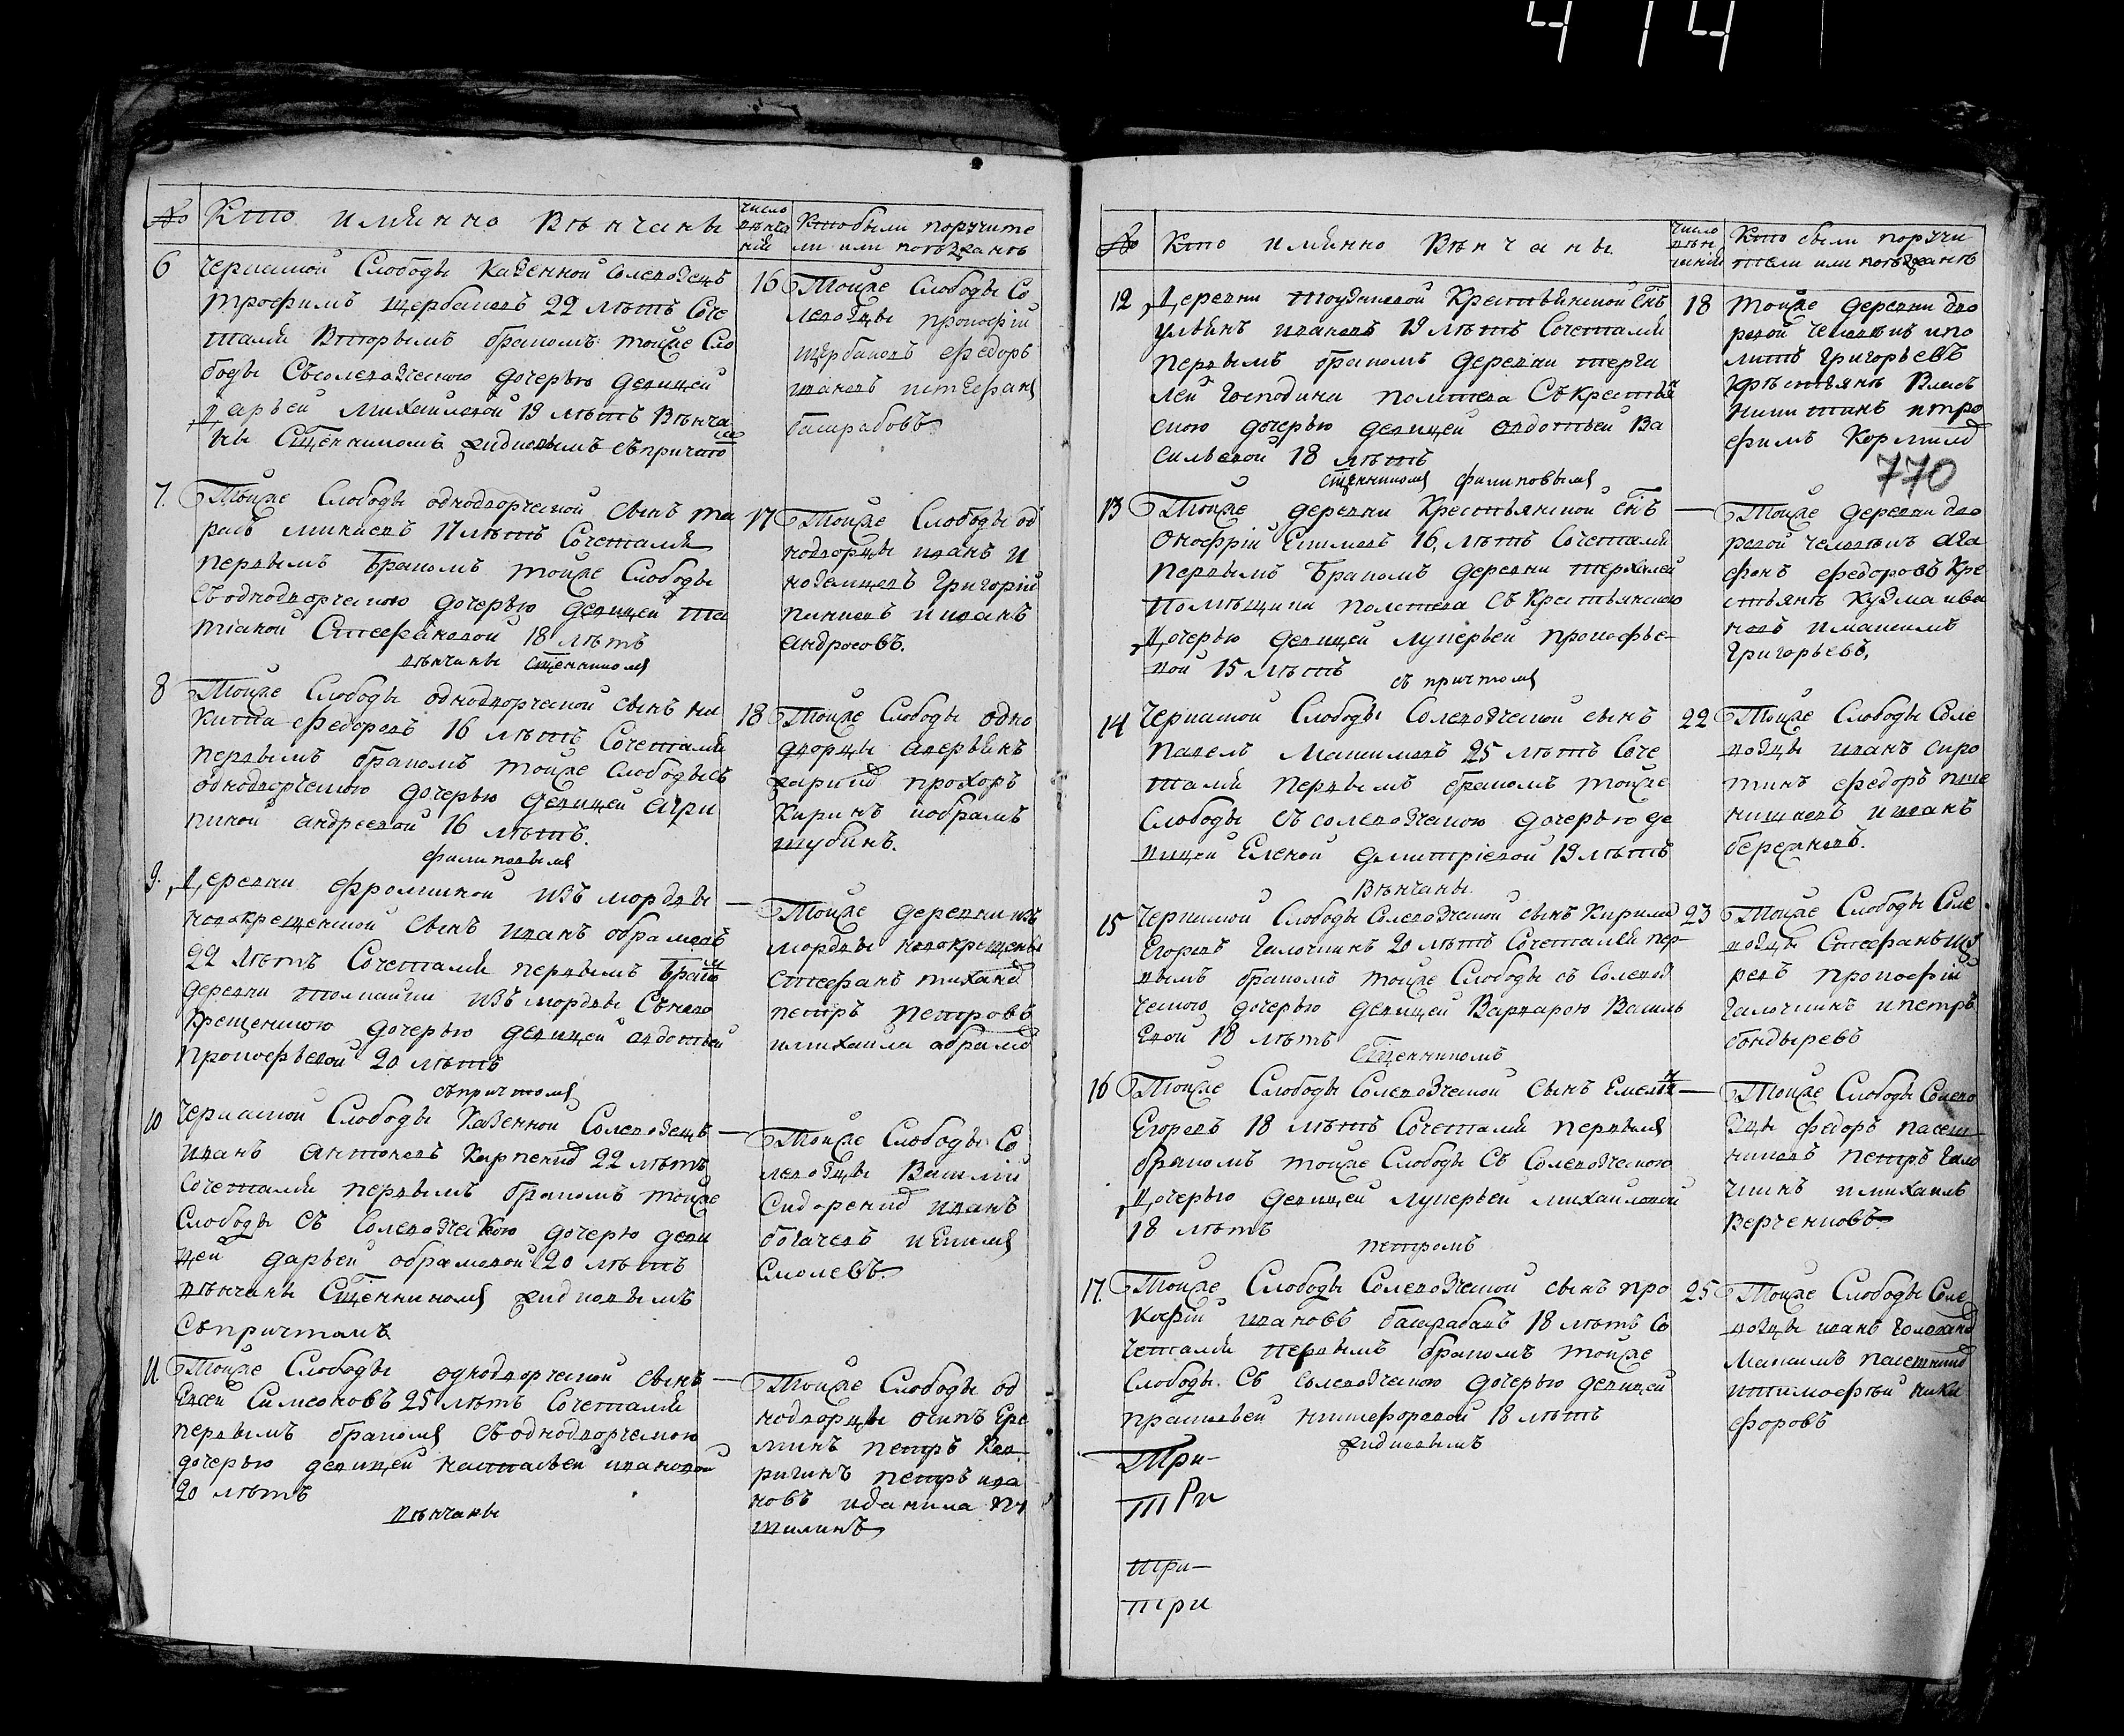 414
№ Кто имянно Вѣнчаны
число вѣнчаній
Кто были поручите
ли или поѣзжанѣ
6 Черкаской Слободы Казенной солевозецъ
трофимъ щербаковъ 22 лѣтъ Соче
тался Вторымъ бракомъ тойже Сло
боды Съсолевозческою дочерью девицей
Дарьей михайловой 19 лѣтъ Вѣнча
ны Сщенникомъ съпричто
16 Тойже Слободы Со
левозцы прокофій
щербаковъ федоръ
ивановъ истефанъ
башрабовъ
7. Тойже Слободы однодворческой сынъ та
расъ минаевъ 17 лѣтъ Сочетался
первымъ бракомъ тойже Слободы
Съоднодворческою дочерью девицей та
тіаной Стефановой 18 лѣтъ
вѣнчаны Сщенникомъ
17 Тойже Слободы од
нодворцы иванъ и
ноземцовъ Григорій
пиниевъ ииванъ
андросовъ.
8 Тойже Слободы однодворческой сынъ ни
кита федоровъ 16 лѣтъ Сочетался
первымъ бракомъ тойже Слободы съ
однодворческою дочерью девицей агри
пиной андреевой 16 лѣтъ.
филиповымъ
18 Тойже Слободы одно
дворцы аверьянъ
прохоръ
Киринъ иобрамъ
шубинъ.
9. Деревни фроликиной изъ мордвы
новокрещенской сынъ иванъ обрамовъ
22 лѣтъ Сочетался первымъ Бракомъ
деревни изъ мордвы Съново
крещенскою дочерью девицей авдотьей
прокофьевой 20 лѣтъ
съпричтомъ
— Тойже деревни изъ
мордвы новокрещены
Стефанъ
петръ петровъ
имихайла
10 Черкаской Слободы Казенной Солевозецъ
иванъ антоновъ Карпенко 22 лѣтъ
Сочетался первымъ бракомъ тойже
Слободы Съ Солевозческою дочерю деви
цей дарьей обрамовой 20 лѣтъ
вѣнчаны Сщенникомъ
Съпричтомъ
— Тойже Слободы Со
левозцы Василій
Сидоренко иванъ
богачевъ иЕкимъ
Смолевъ
11. Тойже Слободы однодворческой сынъ
Евсей Симеоновъ 25 лѣтъ Сочетался
первымъ бракомъ Съоднодворческою
дочерью девицей настасьей ивановой
20 лѣтъ
вѣнчаны
— Тойже Слободы од
нодворцы осипъ Ере
минъ петръ Вев
ригинъ петръ ива
новъ иданила пи
шилинъ
№ Кто имянно Вѣнчаны.
число вѣнчаній
Кто были поручи
тели или поѣзжанѣ
12 Деревни Крестьянской снъ
ульянъ ивановъ 19 лѣтъ Сочетался
первымъ бракомъ деревни
Господина Съкрестья
скою дочерью девицей авдотьей Ва
сильевой 18 лѣтъ
Сщенникомъ филиповымъ
18 тойже деревни дво
ровой человѣкъ ипо
литъ григорьевъ
Крѣстьянъ Власъ
Никитинъ итро
фимъ
770
13 Тойже деревни Крестьянской снъ
Онофрій Екимовъ 16, лѣтъ Сочетался
Первымъ Бракомъ деревни
Помѣщика Съ Крестьянскою
Дочерью девицей лукерьей прокофье-
вой 15 лѣтъ
съ причтомъ
— Тойже деревни дво
ровой человѣкъ ага
фонъ федоровъ Кре
стьянъ Кузма ива
новъ имаксимъ
Григорьевъ,
14 Черкаской Слободы Солевозческой сынъ
Павелъ Максимовъ 25 лѣтъ Соче
тался первымъ бракомъ тойже
Слободы Съсолевозческою дочерью де
вицей Еленой дмитріевой 19 лѣтъ
Вѣнчаны.
22 Тойже Слободы Соле
возцы иванъ сиро
тинъ федоръ пше
ничновъ ииванъ
бережновъ.
15 Черкаской Слободы Солевозческой сынъ Кирила
Егоровъ Галочкинъ 20 лѣтъ Сочетался пер-
вымъ бракомъ тойже Слободы съ Солевоз
ческою дочерью девицей Варварою Василь
Евой 18 лѣтъ
Сщенникомъ
23 Тойже Слободы Соле
возцы Стефанъ
прокофій
Галочкинъ ипетръ
бондыревъ
16 Тойже Слободы Солевозческой сынъ Емельянъ
Егоровъ 18 лѣтъ Сочетался первымъ
бракомъ тойже Слободы Съ Солевозческою
Дочерью девицей лукерьей михайловой
18 лѣтъ
петромъ
— Тойже Слободы Солево
зцы федоръ пасеш
никовъ петръ Гало
чкинъ имихаилъ
Верченковъ
17. Тойже Слободы Солевозческой сынъ про
кофій ивановъ башрабовъ 18 лѣтъ Со
четался первымъ бракомъ тойже
Слободы. Съ солевозческою дочерью девицей
прасковьей никифоровой 18 лѣтъ
25 Тойже Слободы Соле
возцы иванъ
Максимъ
итимофѣй ники
форовъ
Три-
три
три-
три